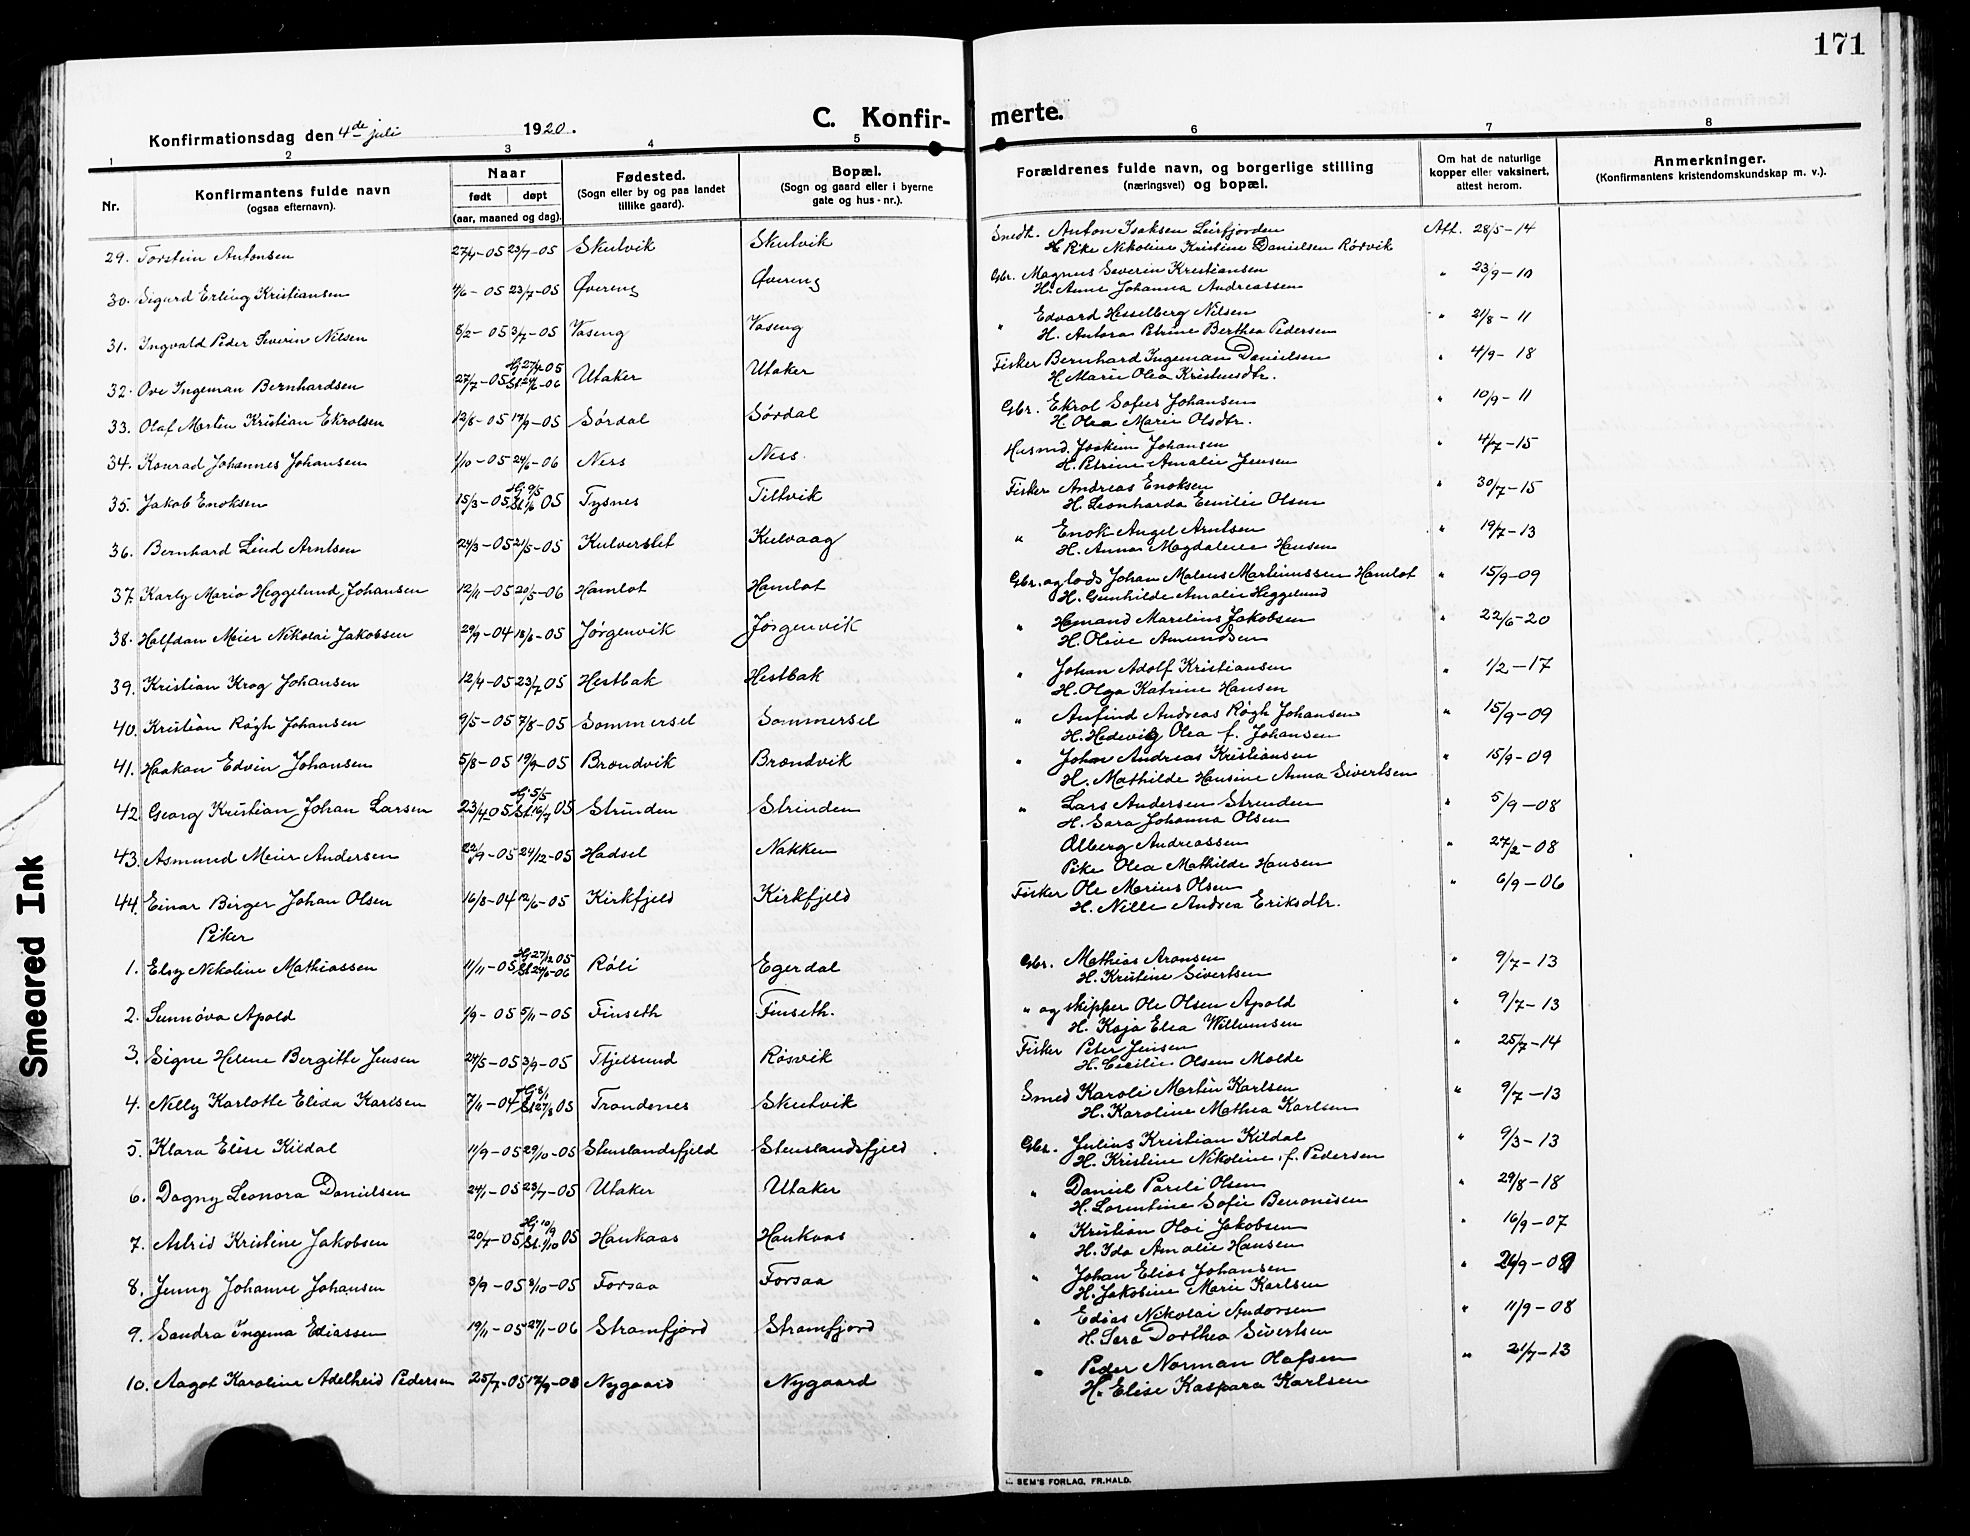 171
Konfirmationsdag den 4de juli 1920.
C. Konfir-
merte.
1 2 3 4 5 6 7 8
Nr.
Konfirmantens fulde navn
(ogsaa efternavn).
Naar
født døpt
(aar, maaned og dag).
Fødested.
(Sogn eller by og paa landet
tillike gaard).
Bopæl.
(Sogn og gaard eller i byerne
gate og hus-nr.).
Forældrenes fulde navn, og borgerlige stilling
(næringsvei) og bopæl.
Om hat de naturlige
kopper eller vaksinert,
attest herom.
Anmerkninger.
(Konfirmantens kristendomskundskap m. v.).
29. Torstein Antonsen 27/4-05 23/7-05 Skutvik Skutvik Smedh. Anton Isaksen Leirfjorden Att. 28/5-14
H Pike Nikoline Kristine Danielsen Rørvik
30. Sigurd Erling Kristiansen 4/6-05 23/7-05 Øvereng Øvereng Gbr. Magnus Severin Kristiansen " 23/9-10
H. Anne Johanna Andreassen
31. Ingvald Peder Severin Nilsen 8/2-05 3/7-05 Vaseng Vaseng " Edvard Hesselberg Nilsen " 21/8-11
H. Antora Petrine Berthea Pedersen
32. Ove Ingeman Bernhardsen 27/7-05 Hj 27/7-05 St. 24/6-06 Utaker Utaker Fisker Bernhard Ingeman Danielsen " 4/9-18
H Marie Olea Kristensdtr.
33. Olaf Martin Kristian Ekrolsen 12/8-05 17/9-05 Sørdal Sørdal Gbr. Ekrol Sofus Johansen " 10/9-11
H Olea Marie Olsdtr.
34. Konrad Johannes Johansen 1/10-05 24/6-06 Ness Ness. Husmd. Joakim Johansen " 4/7-15
H. Petrine Amalie Jensen
35. Jakob Enoksen 15/3-05 Hj 9/5 St. 1/6 05 Tysnes Tiltvik Fisker Andreas Enoksen " 30/7-15
H. Leonharda Emilie Olsen
36. Bernhard Lind Arntsen 24/3-05 21/5-05 Kulverslet Kulvaag " Enok Angel Arntsen " 19/7-13
H. Anna Magdalene Hansen
37. Karly Mario Heggelund Johansen 12/11-05 20/5-06 Hamlot Hamlot Gbr. og lods Johan Maleus Martinussen Hamlot " 15/9-09
H. Gunhilde Amalie Heggelund
38. Halfdan Meier Nikolai Jakobsen 29/9-04 18/6-05 Jørgenvik Jørgenvik " Hemand Marelius Jakobsen " 22/6-20
H. Olive Amundsen
39. Kristian Krog Johansen 12/4-05 23/7 05 Hestbak Hestbak " Johan Adolf Kristiansen " 1/2-17
H. Olga Katrine Hansen
40. Kristian Røgh Johansen 9/5-05 7/8-05 Sommersel Sommersel " Anfind Andreas Røgh Johansen " 15/9-09
H. Hedevig Olea f. Johansen
41. Haakon Edvin Johansen 5/8-05 19/9-05 Brændvik Brændvik " Johan Andreas Kristiansen " 15/9-09
H. Mathilde Hansine Anna Sivertsen
42. Georg Kristian Johan Larsen 23/4 05 Hj 5/5 St. 16/7 05 Strinden Strinden " Lars Andersen Strinden " 5/9-08
H. Sara Johanna Olsen
43. Asmund Meier Andersen 22/9-05 24/12-05 Hadsel Nakken Alberg Andreassen " 27/2-08
Pike Olea Mathilde Hansen
44. Einar Birger Johan Olsen 16/8-04 12/6-05 Kirkfjeld Kirkfjeld Fisker Ole Marius Olsen " 6/9-06
H. Nille Andrea Eriksdtr.
Piker
1. Elsy Nikoline Mathiassen 11/11-05 Hj 27/12 05 St 24/6-06 Røli Egerdal Gbr. Mathias Aronsen " 9/7-13
H. Kristine Sivertsen
2. Sunnøva Apold 1/9-05 5/11-05 Finseth Finseth. " og skipper Ole Olsen Apold " 9/7-13
H. Kaja Elea Willumsen
3. Signe Helene Bergitte Jensen 24/5-05 3/9-05 Tjelsund Røsvik Fisker Peter Jensen " 25/7-14
H. Cecilie Olsen Molde
4. Nelly Karlotte Elida Karlsen 7/11-04 Hj 8/1 St 27/3 05 Trondenes Skutvik Smed Karoli Martin Karlsen " 9/7-13
H. Karoline Mathea Karlsen
5. Klara Elise Kildal 11/9-05 29/10-05 Stenslandsfjeld Stenslandsfjeld Gbr. Julius Kristian Kildal " 9/3-13
H. Kristine Nikoline, f. Pedersen
6. Dagny Leonora Danielsen 24/1-05 23/7-05 Utaker Utaker " Daniel Pareli Olsen " 29/8-18
H. Lorentine Sofie Benonisen
7. Astrid Kristine Jakobsen 20/7-05 Hj 10/9 St. 1/10 05 Haukaas Haukaas " Kristian Oloi Jakobsen " 16/9-07
H. Ida Amalie Hansen
8. Jenny Johanne Johansen 3/9-05 8/10-05 Forsaa Forsaa " Johan Elias Johansen " 26/9-09
H. Jakobine Marie Karlsen
9. Sandra Ingema Ediassen 19/11-05 27/1-06 Strømfjord Strømfjord " Edias Nikolai Andorsen " 11/9-08
H. Sara Dorthea Sivertsen
10. Aagot Karoline Adelheid Pedersen 25/7-05 17/9-08 Nygaard Nygaard " Peder Norman Olafsen " 21/7-13
H. Elise Kaspara Karlsen
SEM'S FORLAG, FR.HALD.
Smeared Ink